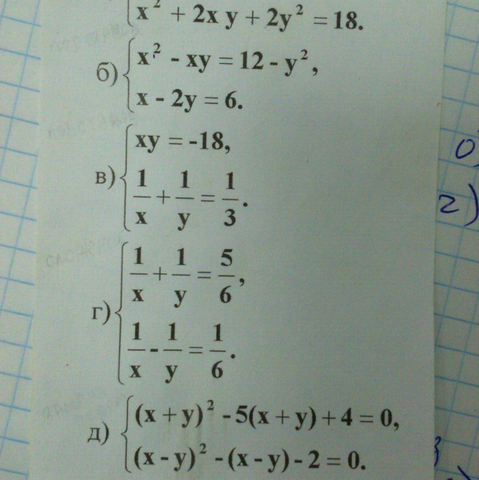 x² + 2xy + 2y² = 18.
б) x² - xy = 12 - y²,
x - 2y = 6.
в) xy = -18,
1/x + 1/y = 1/3.
г) 1/x + 1/y = 5/6,
1/x - 1/y = 1/6.
д) (x + y)² - 5(x + y) + 4 = 0,
(x - y)² - (x - y) - 2 = 0.
2)